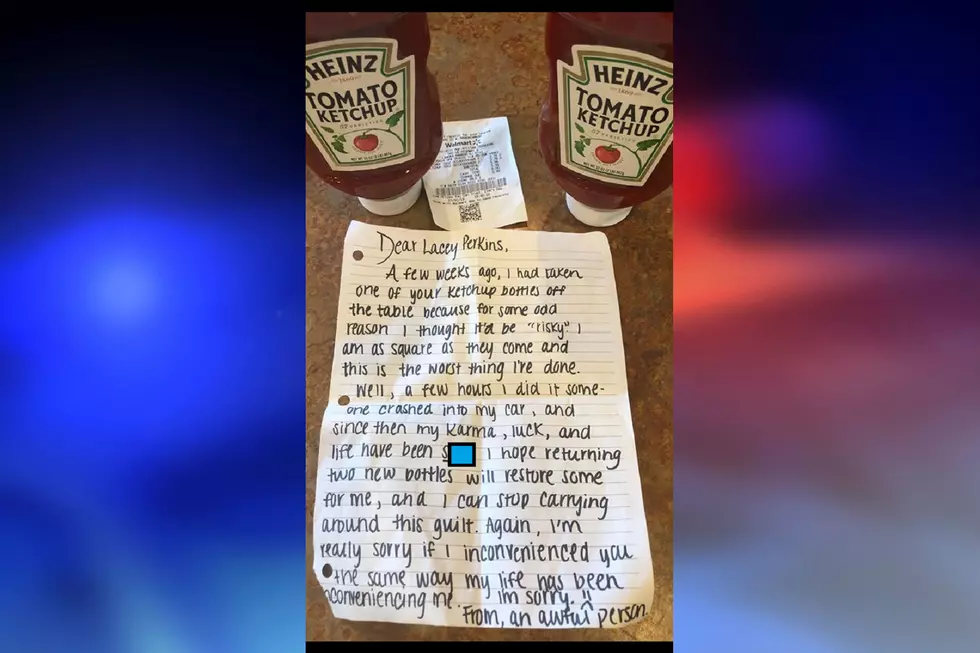 HEINZ
TOMATO
KETCHUP
57 VARIETIES
HEINZ
TOMATO
KETCHUP
57 VARIETIES
Walmart
Dear Lacey Perkins,
A few weeks ago, I had taken
one of your ketchup bottles off
the table because for some odd
reason I thought it'd be "risky" I
am as square as they come and
this is the worst thing I've done.
Well, a few hours I did it some-
one crashed into my car, and
since then my karma, luck, and
life have been s I hope returning
two new bottles will restore some
for me, and I can stop carrying
around this guilt. Again, I'm
really sorry if I inconvenienced you
the same way my life has been
inconveniencing me. I'm sorry. !!
From, an awful person.